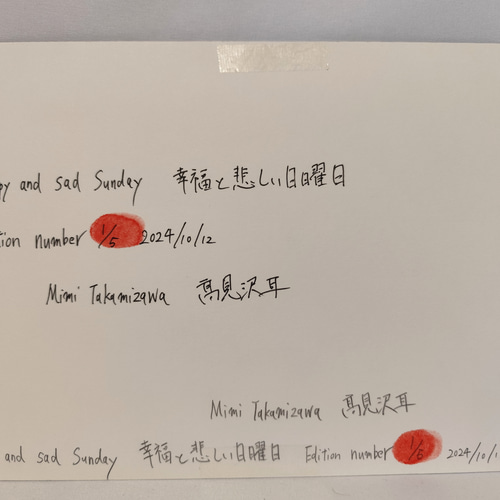 py and sad Sunday 幸福と悲しい日曜日
tion number 1/5 2024/10/12
Mimi Takamizawa 髙見沢耳
Mimi Takamizawa 髙見沢耳
and sad Sunday 幸福と悲しい日曜日 Edition number 1/5 2024/10/1